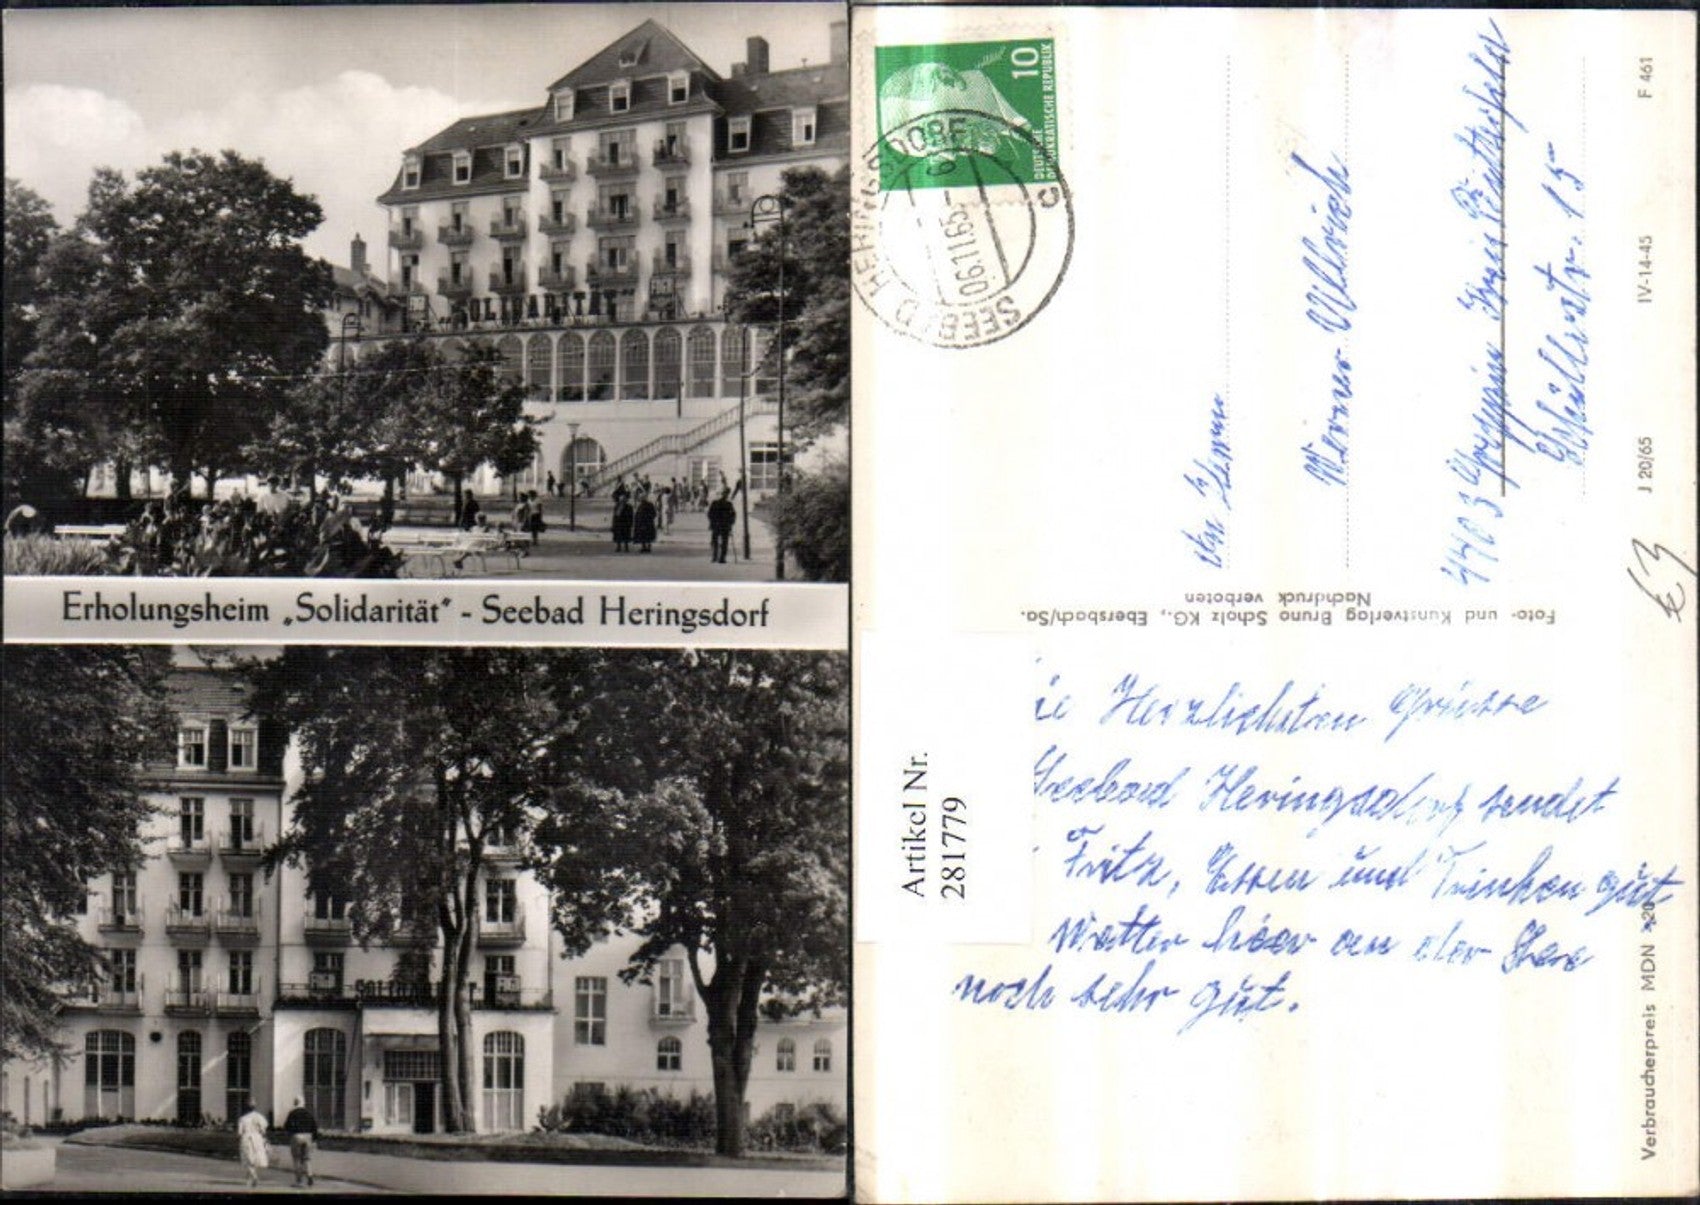 SOLIDARITÄT
Erholungsheim „Solidarität“ - Seebad Heringsdorf
SOLIDARITÄT
10
DEUTSCHE
DEMOKRATISCHE REPUBLIK
SEEBAD HERINGSDORF
06.11.65
c
An Herrn
Werner Ullrich
4403
Schüllerstr. 15
F 461
IV-14-45
J 20/65
Verbraucherpreis MDN 0,20
Foto- und Kunstverlag Bruno Scholz KG., Ebersbach/Sa.
Nachdruck verboten
€3
Artikel Nr.
281779
ie Herzlichsten Grüsse
Seebad Heringsdorf sendet
Fritz, Essen und Trinken gut
Wetter hier an der See
noch sehr gut.